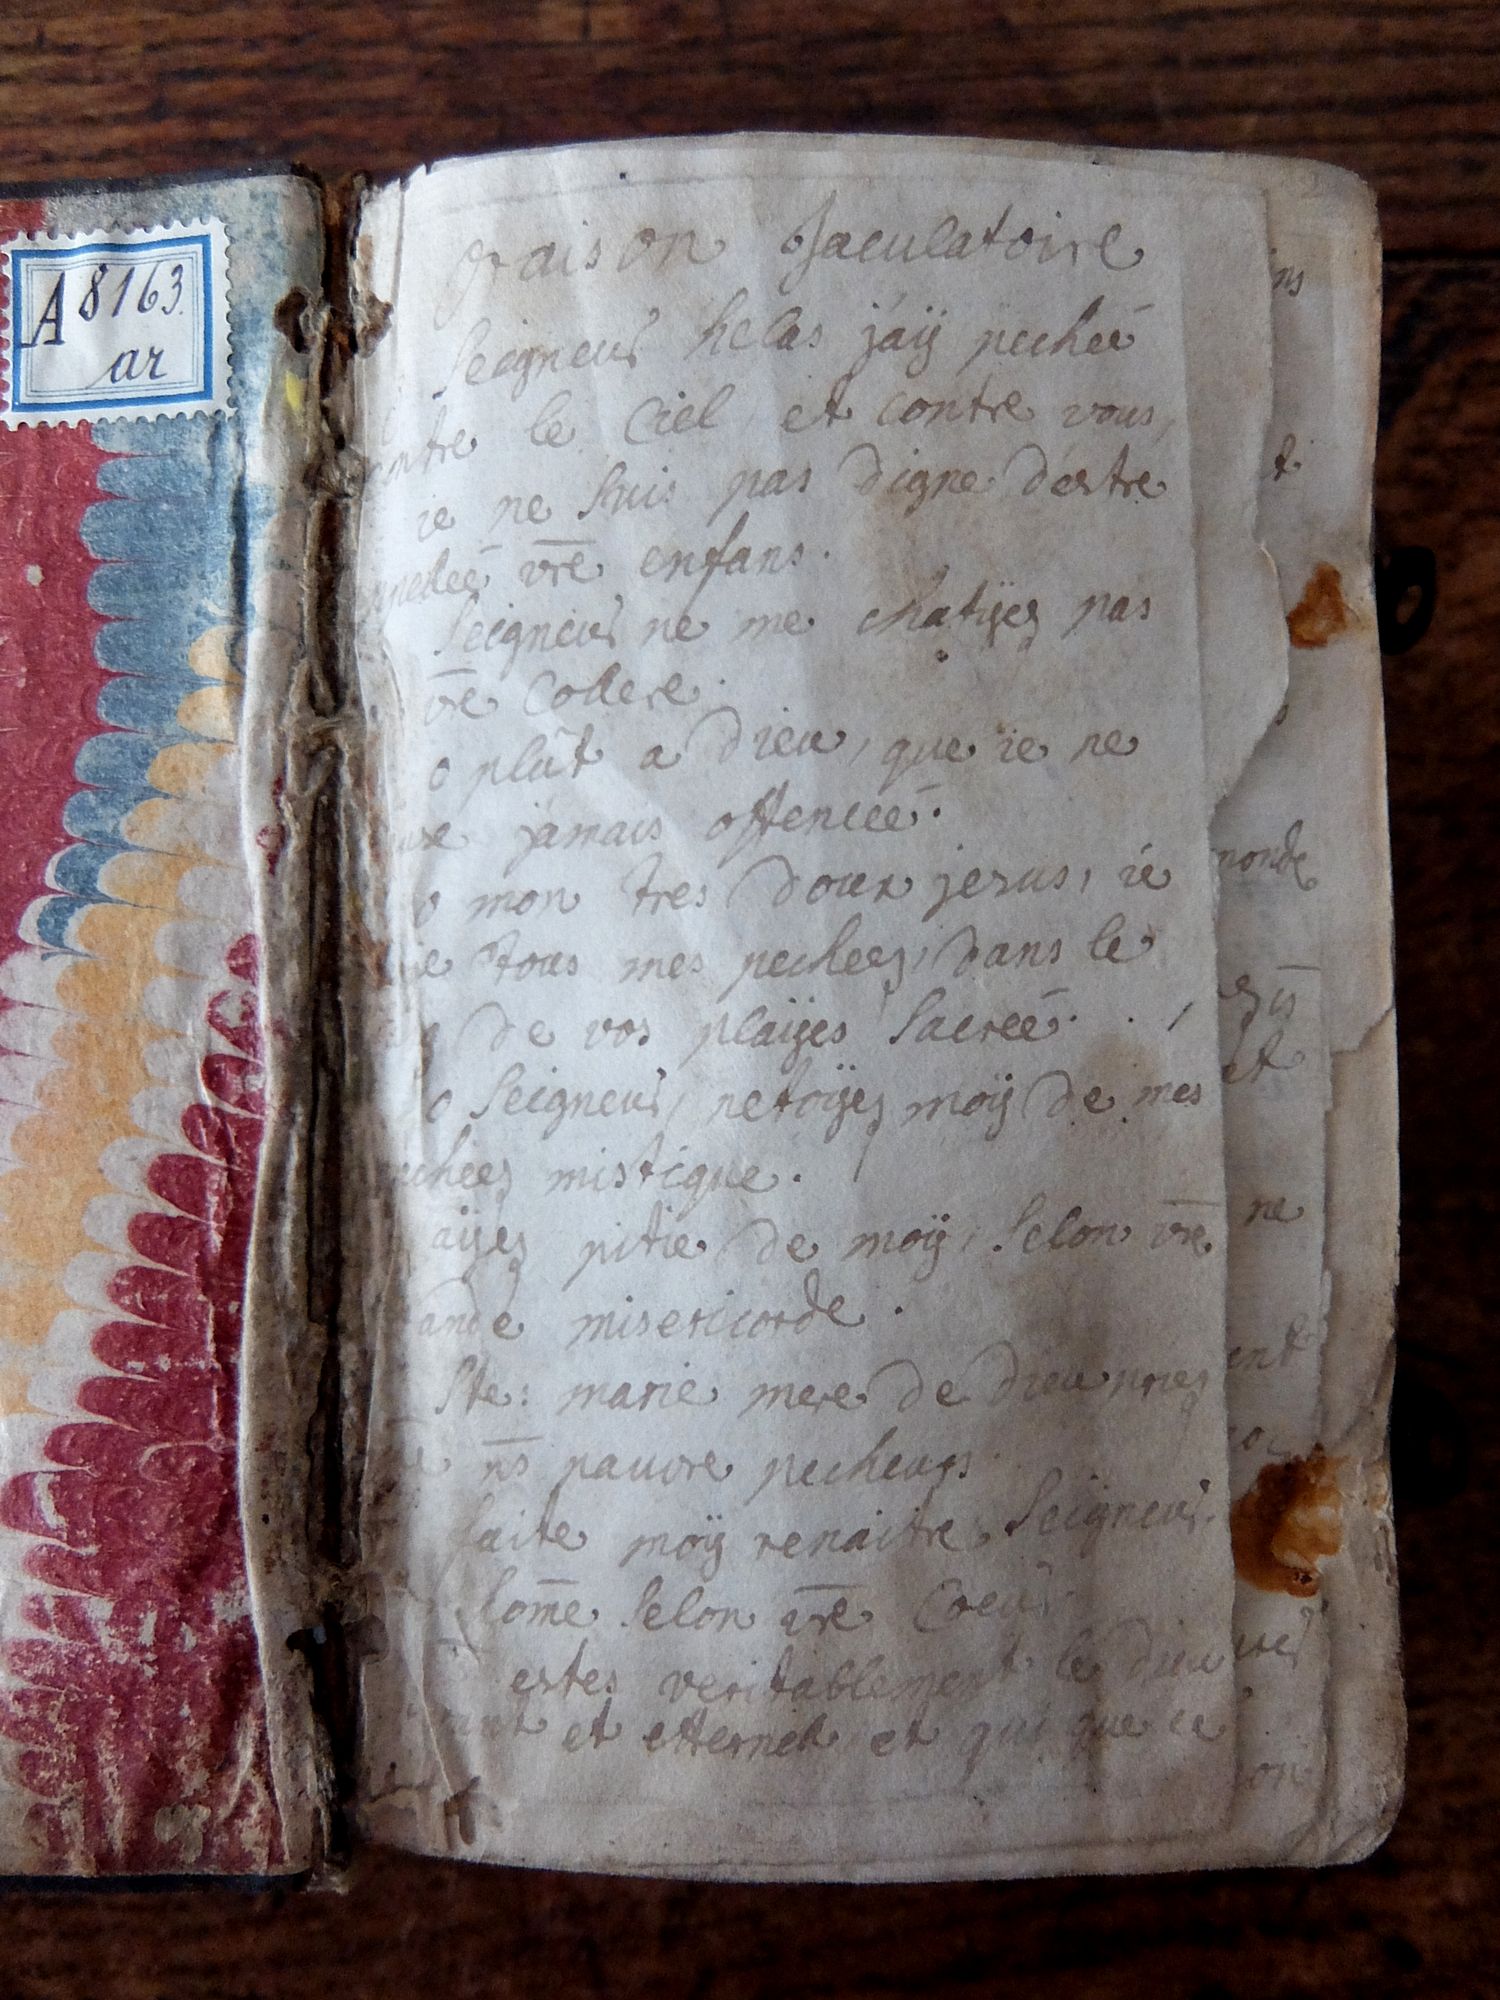 A 8163.
ar
Oraison Jaculatoire
Seigneur helas j'aÿ pecheé
contre le Ciel et contre vous,
ie ne suis pas digne d'estre
appelleé vr̄e enfans.
Seigneur ne me chatÿez pas
vr̄e Collere.
o plût a Dieu, que ie ne
jamais offenceé.
o mon tres doux jesus, ie
tous mes pecheez, dans le
de vos plaÿes Sacreé.
o Seigneur, netoÿez moÿ de mes
pecheez mistique.
aÿez pitie de moÿ, Selon vr̄e
grande misericorde.
Ste: marie mere de Dieu priez
n̄s pauvre pecheurs.
faite moÿ renaitre Seigneur.
hom̄e Selon vr̄e Coeur
estes veritablement le Dieu
et etternel et qui que ce
ns
t
monde
et
ne
ent